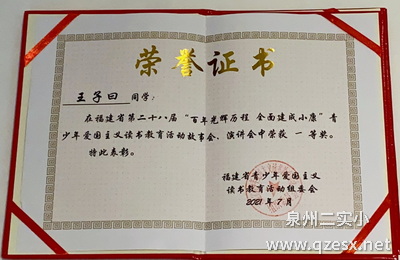 荣誉证书
王子曰 同学：
在福建省第二十八届“百年光辉历程 全面建成小康”青
少年爱国主义读书教育活动故事会、演讲会中荣获 一等奖。
特此表彰。
福建省青少年爱国主义
读书教育活动组委会
2021年7月
泉州二实小
www.qzesx.net